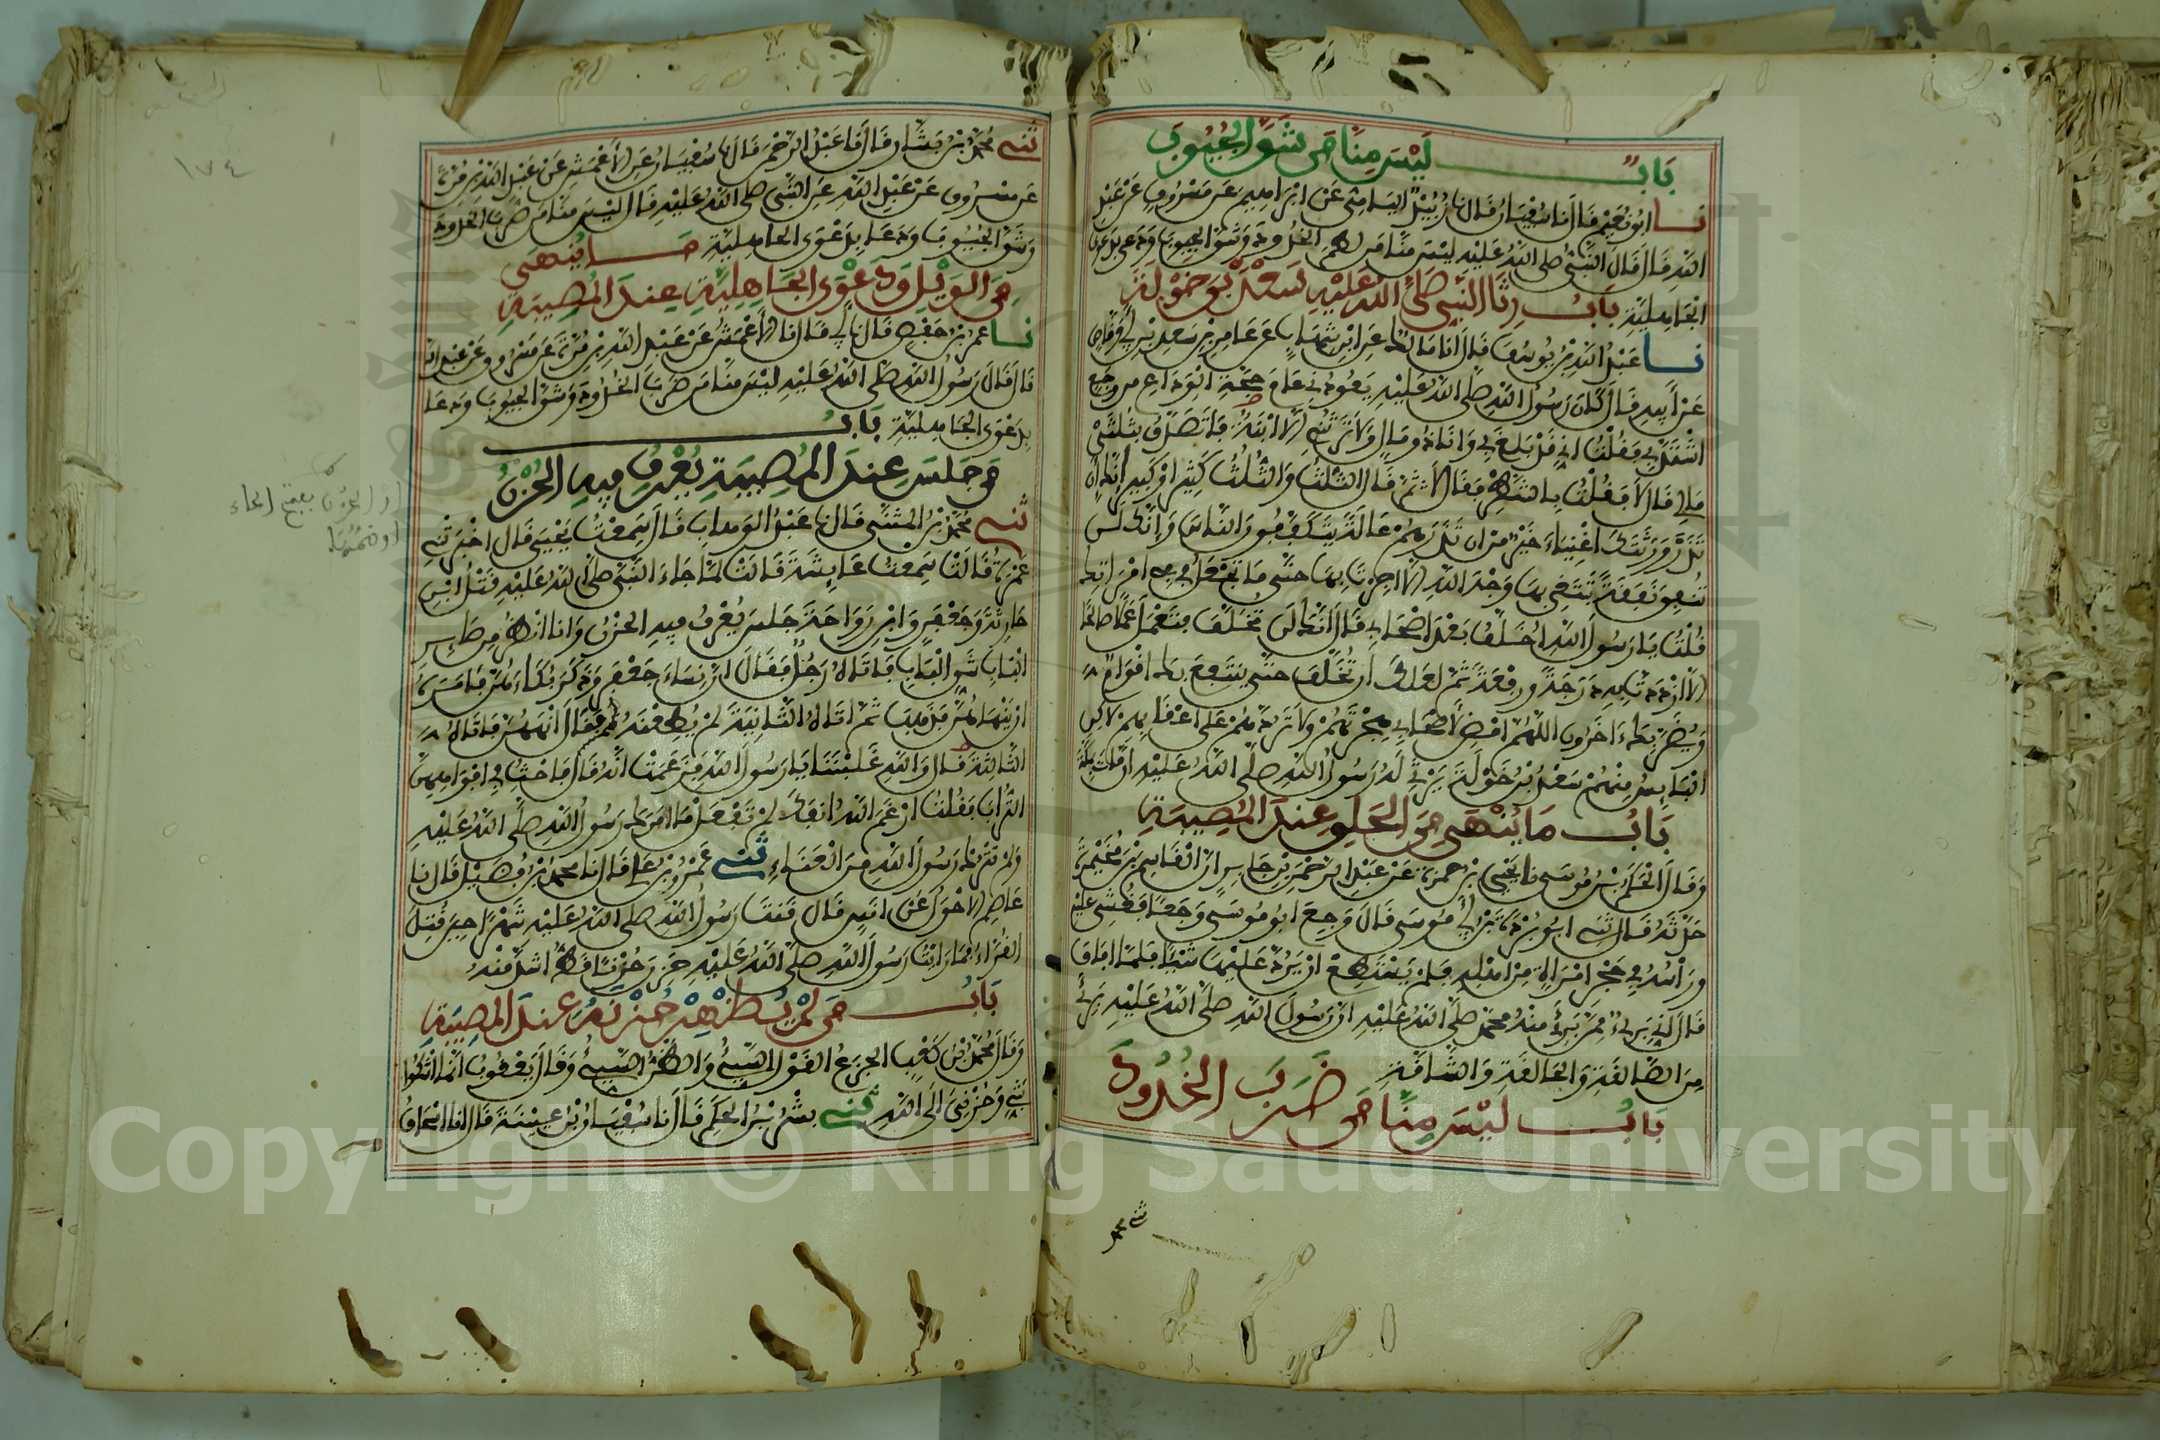 بَابٌ لَيْسَ مِنَّا مَن شَقَّ الجُيُوبَ
نا ابُو نُعَيْمٍ قَالَ أنا سُفْيَانُ قَالَ نا زُبَيْدٌ اليَامِيُّ عَنْ ابْرَاهِيمَ عَن مَسْرُوقٍ عَنْ عَبْدِ
اللهِ قَالَ قَالَ النَّبِيُّ صلى اللهُ عَلَيْهِ لَيْسَ مِنَّا مَن لطمَ الخُدُودَ وَشَقَّ الجيوبَ وَدَعَى بِدَعْوَى
الجَاهِلِيَّةِ بَابُ رِثَا النَّبِي صَلَّى اللهُ عَلَيْهِ سَعْدَ بْنَ خَوْلَةَ
نا عَبْدُ اللهِ بْنُ يُوسُفَ قَالَ انا مَالِك عَن ابْنِ شِهَابٍ عَن عَامِرِ بْنِ سَعدِ بْنِ أبِي وَقَّاصٍ
عَنْ أبِيهِ قَالَ كَانَ رَسُولُ اللهِ صَلَّى اللهُ عَلَيْهِ يَعُودُنِي عَامَ حَجَّةِ الوَدَاعِ مِن وَجَعٍ
اشْتَدَّ بِي فَقُلْتُ اني قَدْ بَلَغَ بِي وَانَا ذُو مَالٍ وَلاَ تَرِثُنِي إلاَّ ابْنَةٌ فَاَتَصَدَّقُ بِثُلُثَيْ
مَالِي قَالَ لاَ فَقُلْتُ بِالشَّطْرِ فَقَالَ لاَ ثُمَّ قَالَ الثُّلُثُ وَالثُّلُثُ كَثِيرٌ اوْ كَبِيرٌ إنَّكَ ان
تَذَرَ وَرَثَتَكَ اغْنِيَاءَ خَيْرٌ مِنْ ان تَذَرَهُمْ عَالَةً يَتَكَفَّفُونَ النَّاسَ وَإِنَّكَ لَن
تُنْفِقَ نَفَقَةً تَبْتَغِي بِهَا وَجْهَ اللهِ إلاَّ اجِرْتَ بِهَا حَتَّى مَا تَجْعَلُ فِي فِي امْرَاَتِكَ
قُلْتُ يَا رَسُولَ اللهِ اُخَلَّفُ بَعْدَ اصْحَابِي قَالَ انَّكَ لَن تُخَلَّفَ فَتَعْمَلَ عَمَلاً صَالِحًا
إلاَّ ازْدَدْتَ بِهِ دَرَجَةً وَرِفْعَةً ثُمَّ لَعَلَّكَ أَن تُخَلَّفَ حَتَّى يَنْتَفِعَ بِكَ اقْوَامٌ
وَيُضَرَّ بِكَ ءاخَرُونَ اللَّهُمَّ امْضِ لأَصْحَابِي هِجْرَتَهُمْ وَلاَ تَرُدَّهُمْ عَلَى اعْقَابِهِمْ لاَكِنِ
البَايِسُ مِنْهُمْ سَعْدُ بْنُ خَوْلَةَ يَرْثِي لَهُ رَسُولُ اللهِ صَلَّى اللهُ عَلَيْهِ ان مَاتَ بِمَكَّةَ
بَابُ مَا يُنْهَى مِنَ الحَلْقِ عِنْدَ المُصِيبَةِ
وَقَالَ الحَكَمُ بْنُ مُوسَى نا يَحْيَى بْنُ حمزَةَ عَنْ عَبْدِ الرَّحْمَنِ بْنِ جَابِرٍ أنَّ القَاسِمَ بْنَ مُخَيْمِرَةَ
حَدَّثَهُ قَالَ ثَنِي ابُو بُرْدَةَ بْنُ أبِي مُوسَى قَالَ وَجِعَ ابُو مُوسَى وَجَعًا فَغُشِيَ عَلَيْهِ
وَرَأْسُهُ فِي حَجْرِ امْرَاَةٍ مِنَ اهْلِهِ فَلَمْ يَسْتَطِعْ أنْ يَرُدَّ عَلَيْهَا شَيْئًا فَلَمَّا افَاقَ
قَالَ إنِّي بَرِيءٌ مِمَّنْ بَرِئَ مِنْهُ مُحَمَّد صَلَّى اللهُ عَلَيْهِ انَّ رَسُولَ اللهِ صَلَّى اللهُ عَلَيْهِ بَرِئَ
مِنَ الصَّالِقَةِ وَالحَالِقَةِ وَالشَّاقَّةِ
بَابُ لَيْسَ مِنَّا مَن ضَرَبَ الخُدُودَ
ثني محمد
ثَنِي مُحَمَّدُ بْنُ بَشَّارٍ قَالَ نَا عَبْدُ الرَّحْمَنِ قَالَ نا سُفْيَانُ عَنِ الأَعْمَشِ عَنْ عَبْدِ اللهِ بْنِ مُرَّةَ
عَن مَسْرُوقٍ عَنْ عَبْدِ اللهِ عَنِ النَّبِي صلى اللهُ عَلَيْهِ قَالَ لَيْسَ مِنَّا مَن ضَرَبَ الخُدُودَ
وَشَقَّ الجُيُوبَ وَدَعَا بِدَعْوَى الجَاهِلِيَّةِ مَا يُنْهَى
مِنَ الوَيْلِ وَدَعْوَى الجَاهِلِيَّةِ عِنْدَ المُصِيبَةِ
نا عُمَرُ بْنُ حَفْصٍ قَالَ نا أبِي قَالَ نا الأَعْمَشُ عَنْ عَبْدِ اللهِ بْنِ مُرَّةَ عَن مَسْرُوقٍ عَنْ عَبْدِ اللهِ
قَالَ قَالَ رَسُولُ اللهِ صَلَّى اللهُ عَلَيْهِ لَيْسَ مِنَّا مَن ضَرَبَ الخُدُودَ وَشَقَّ الجيُوبَ وَدَعَا
بِدَعْوَى الجَاهِلِيَّةِ بَابُ
مَن جَلَسَ عِنْدَ المُصِيبَةِ يُعْرَفُ فِيهِ الحُزْنُ
او الحزن بفتح الحاء
او ضمها
ثَنِي مُحَمَّدُ بْنُ المُثَنَّى قَالَ نا عَبْدُ الوَهابِ قَالَ سَمِعْتُ يَحْيَى قَالَ اخْبَرَتْنِي
عَمْرَةُ قَالَتْ سَمِعْتُ عَايِشَةَ قَالَتْ لَمَّا جَاءَ النَّبِي صَلَّى اللهُ عَلَيْهِ قَتْلُ ابْنِ
حَارِثَةَ وَجَعْفَرٍ وَابْنِ رَوَاحَةَ جَلَسَ يُعْرَفُ فِيهِ الحُزْنُ وَانَا انْظُرُ مِن صَايِرِ
البَابِ شَقِّ البَابِ فَاَتَاهُ رَجُلٌ فَقَالَ إنَّ نِسَاءَ جَعْفَرٍ وَذَكَرَ بُكَاءَهُنَّ فَاَمَرَهُ
أن يَنْهَاهُنَّ فَذَهَبَ ثُمَّ اتَاهُ الثَّانِيَةَ لَمْ يُطِعْنَهُ فَقَالَ انْهَهُنَّ فَاَتَاهُ
الثَّالِثَةَ قَالَ وَاللهِ غَلَبْنَنَا يَا رَسُولَ اللهِ فَزَعَمَتْ انَّهُ قَالَ فَاحْثُ فِي افْوَاهِهِنَّ
التُّرَابَ فَقُلْتُ ارْغَمَ اللهُ انفَكَ لَمْ تَفْعَلْ مَا امَرَكَ رَسُولُ اللهِ صَلَّى اللهُ عَلَيْهِ
وَلَمْ تَتْرُك رَسُولَ اللهِ مِنَ العَنَاءِ ثَنِي عَمْرُو بْنُ عَلِي قَالَ نا مُحَمَّدُ بْنُ فُضَيْلٍ قَالَ نا
عَاصِمٌ الأَحْوَلُ عَن انَسٍ قَالَ قَنَتَ رَسُولُ اللهِ صَلَّى اللهُ عَلَيْهِ شَهْرًا حِينَ قُتِلَ
القُرَّاءُ فَمَا رَايْتُ رَسُولَ اللهِ صَلَّى اللهُ عَلَيْهِ حَزِنَ حُزْنًا قَطُّ اشَدَّ مِنْهُ
بَابُ مَن لَمْ يُظْهِرْ حُزْنَهُ عِنْدَ المُصِيبَةِ
وَقَالَ مُحَمَّدُ بْنُ كَعْبٍ الجَزَعُ القَوْلُ السَّيِّئُ وَالظَّنُّ السَّيِّئُ وَقَالَ يَعْقُوبُ انَّمَا اشْكُوا
بَثِّي وَحُزْنِيَ الَى اللهِ ثَنِي بِشْرُ بْنُ الحَكَمِ قَالَ نا سُفْيَانُ بْنُ عُيَيْنَةَ قَالَ نا اسْحَاقُ
١٧٤
Copyright © King Saud University